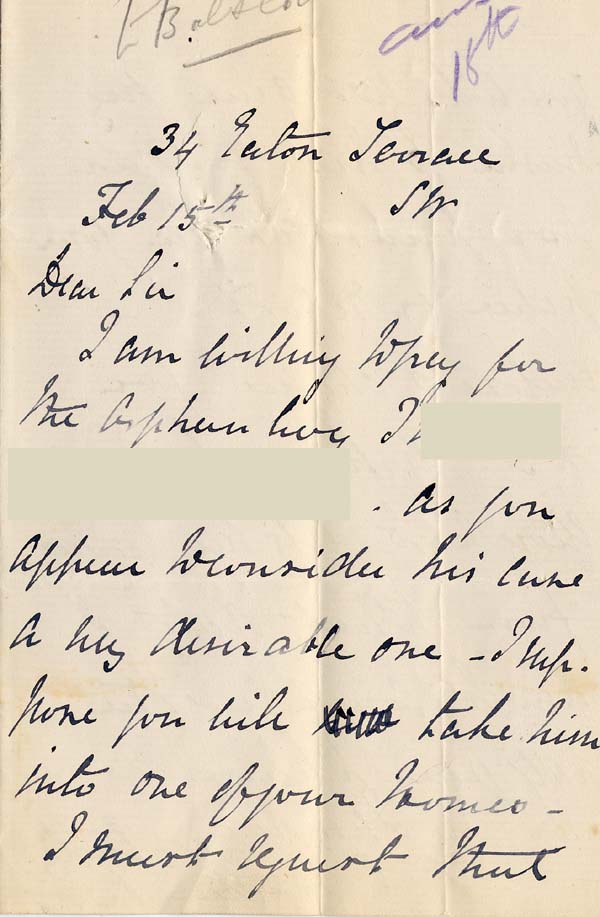 18th
34 Eaton Terrace
Feb 15th SW
Dear Sir
I am willing to pay for
the orphan boy
. as you
appear to consider his case
a very desirable one - I sup-
pose you will take him
into one of your Homes -
I must request that